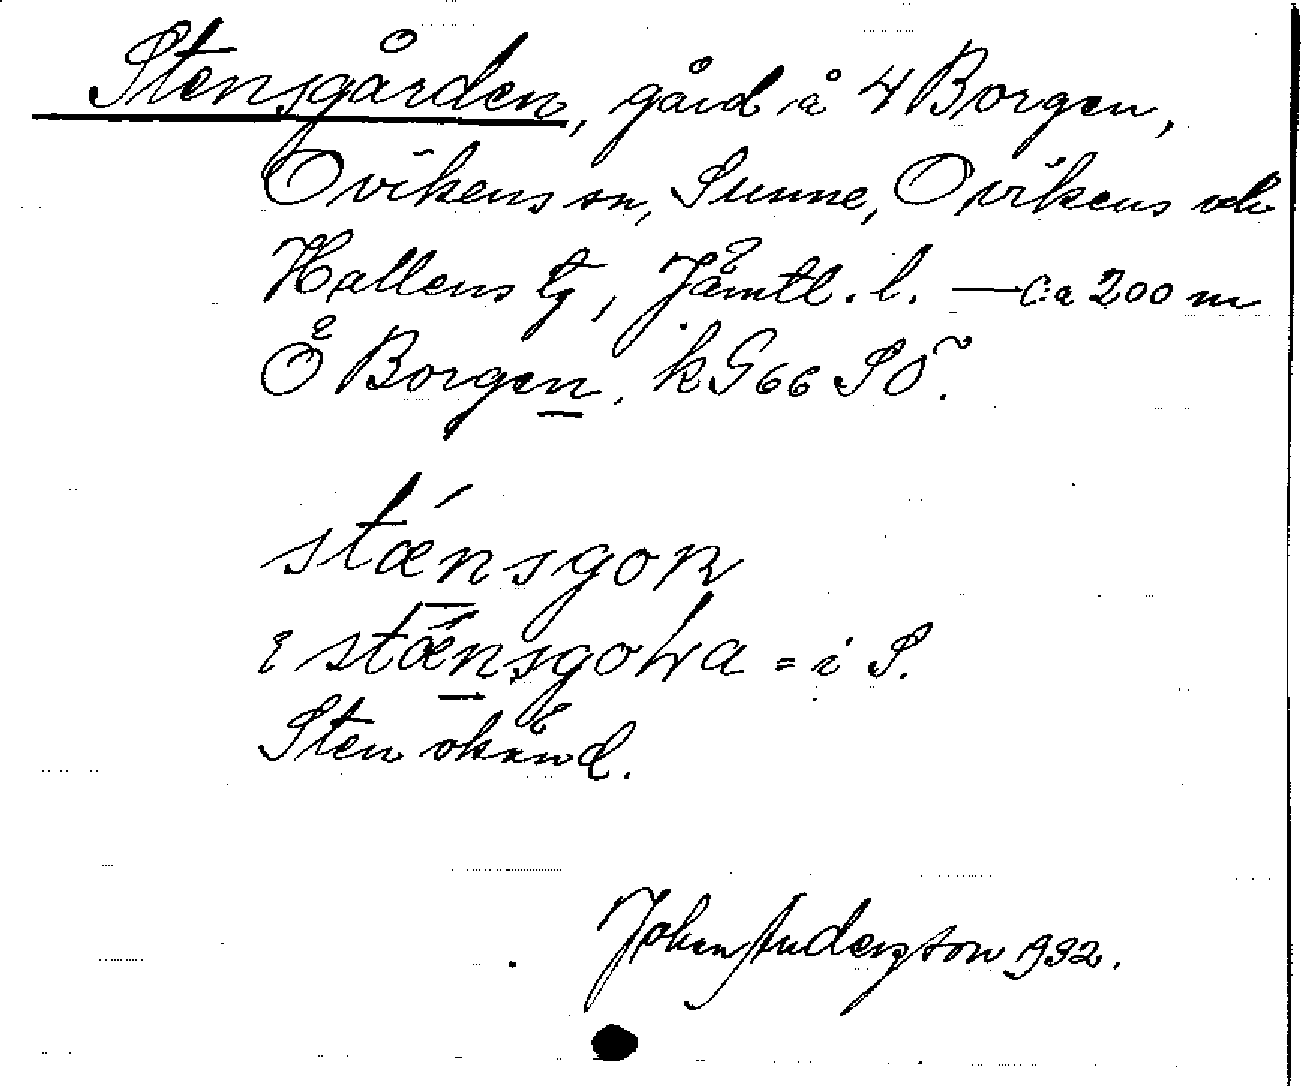 Stensgården, gård å 4 Borgen,
Ovikens sn, Sunne, Ovikens och
Hallens tg, Jämtl. l. — Ca 200 m
Ö Borgen, kG66 SÖ.
stǽnsgoɴ
i stǽnsgoɫɴa = i S.
Sten okänd.
Johan Anderzson 1932.